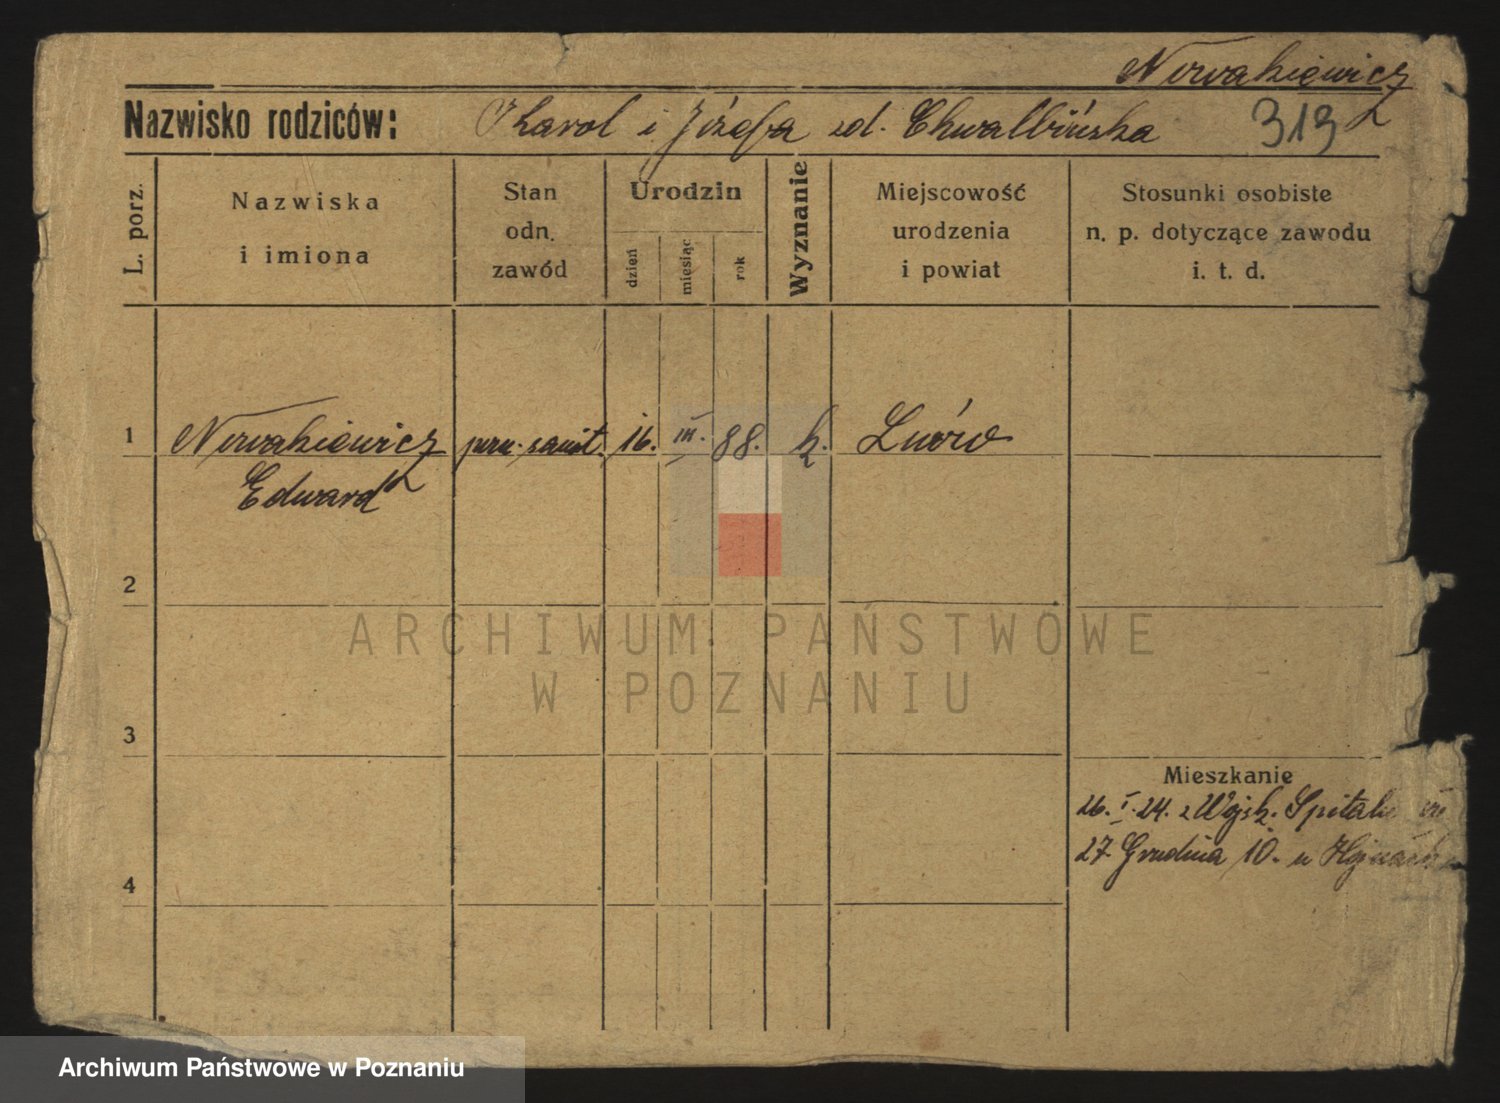 Nowakiewicz
Nazwisko rodziców: Karol i Józefa zd. Chwalbińska 319
L. porz.
Nazwiska
i imiona
Stan
odn.
zawód
Urodzin
dzień
miesiąc
rok
Wyznanie
Miejscowość
urodzenia
i powiat
Stosunki osobiste
n. p. dotyczące zawodu
i. t. d.
1 Nowakiewicz sanit. 16. III. 88. k. Lwów
Edward
2
3
Mieszkanie
26. I. 24. z Wojsk. Spitalu
27 Grudnia 10. u
4
ARCHIWUM PAŃSTWOWE
W POZNANIU
Archiwum Państwowe w Poznaniu